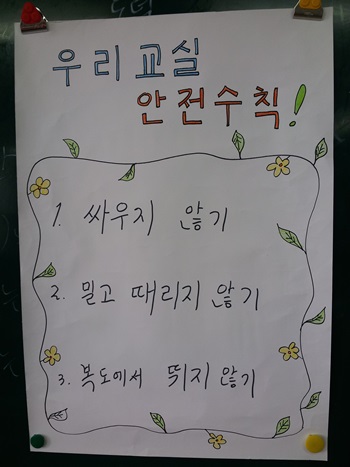 우리 교실
안전수칙!
1. 싸우지 않기
2. 밀고 때리지 않기
3. 복도에서 뛰지 않기